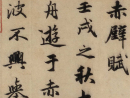 赤壁賦
壬戌之秋
舟游于赤
波不興舉